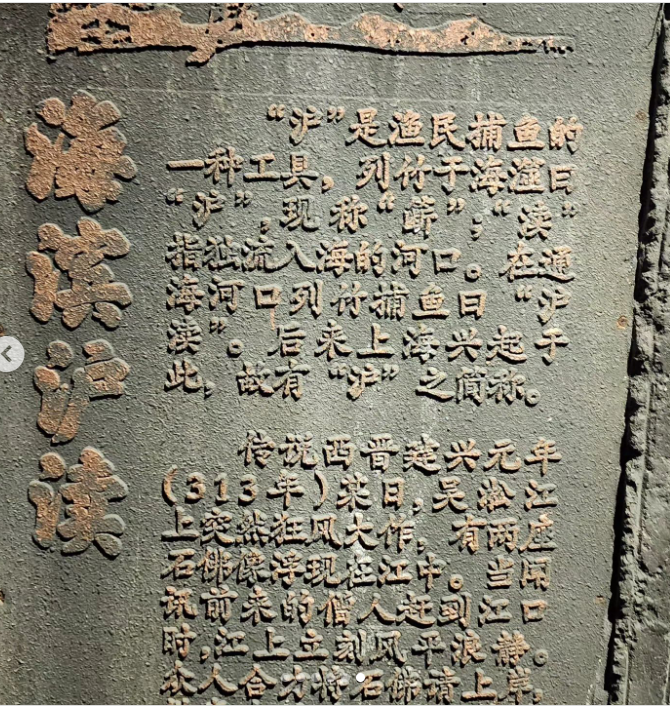 海滨沪渎
“沪”是渔民捕鱼的
一种工具，列竹于海澨曰
“沪”，现称“簖”；“渎”
指独流入海的河口。在通
海河口列竹捕鱼曰“沪
渎”。后来上海兴起于
此，故有“沪”之简称。
传说西晋建兴元年
(313年)某日，吴淞江
上突然狂风大作，有两座
石佛像浮现在江中。当闻
讯前来的僧人赶到江口
时，江上立刻风平浪静。
众人合力将石佛请上岸，